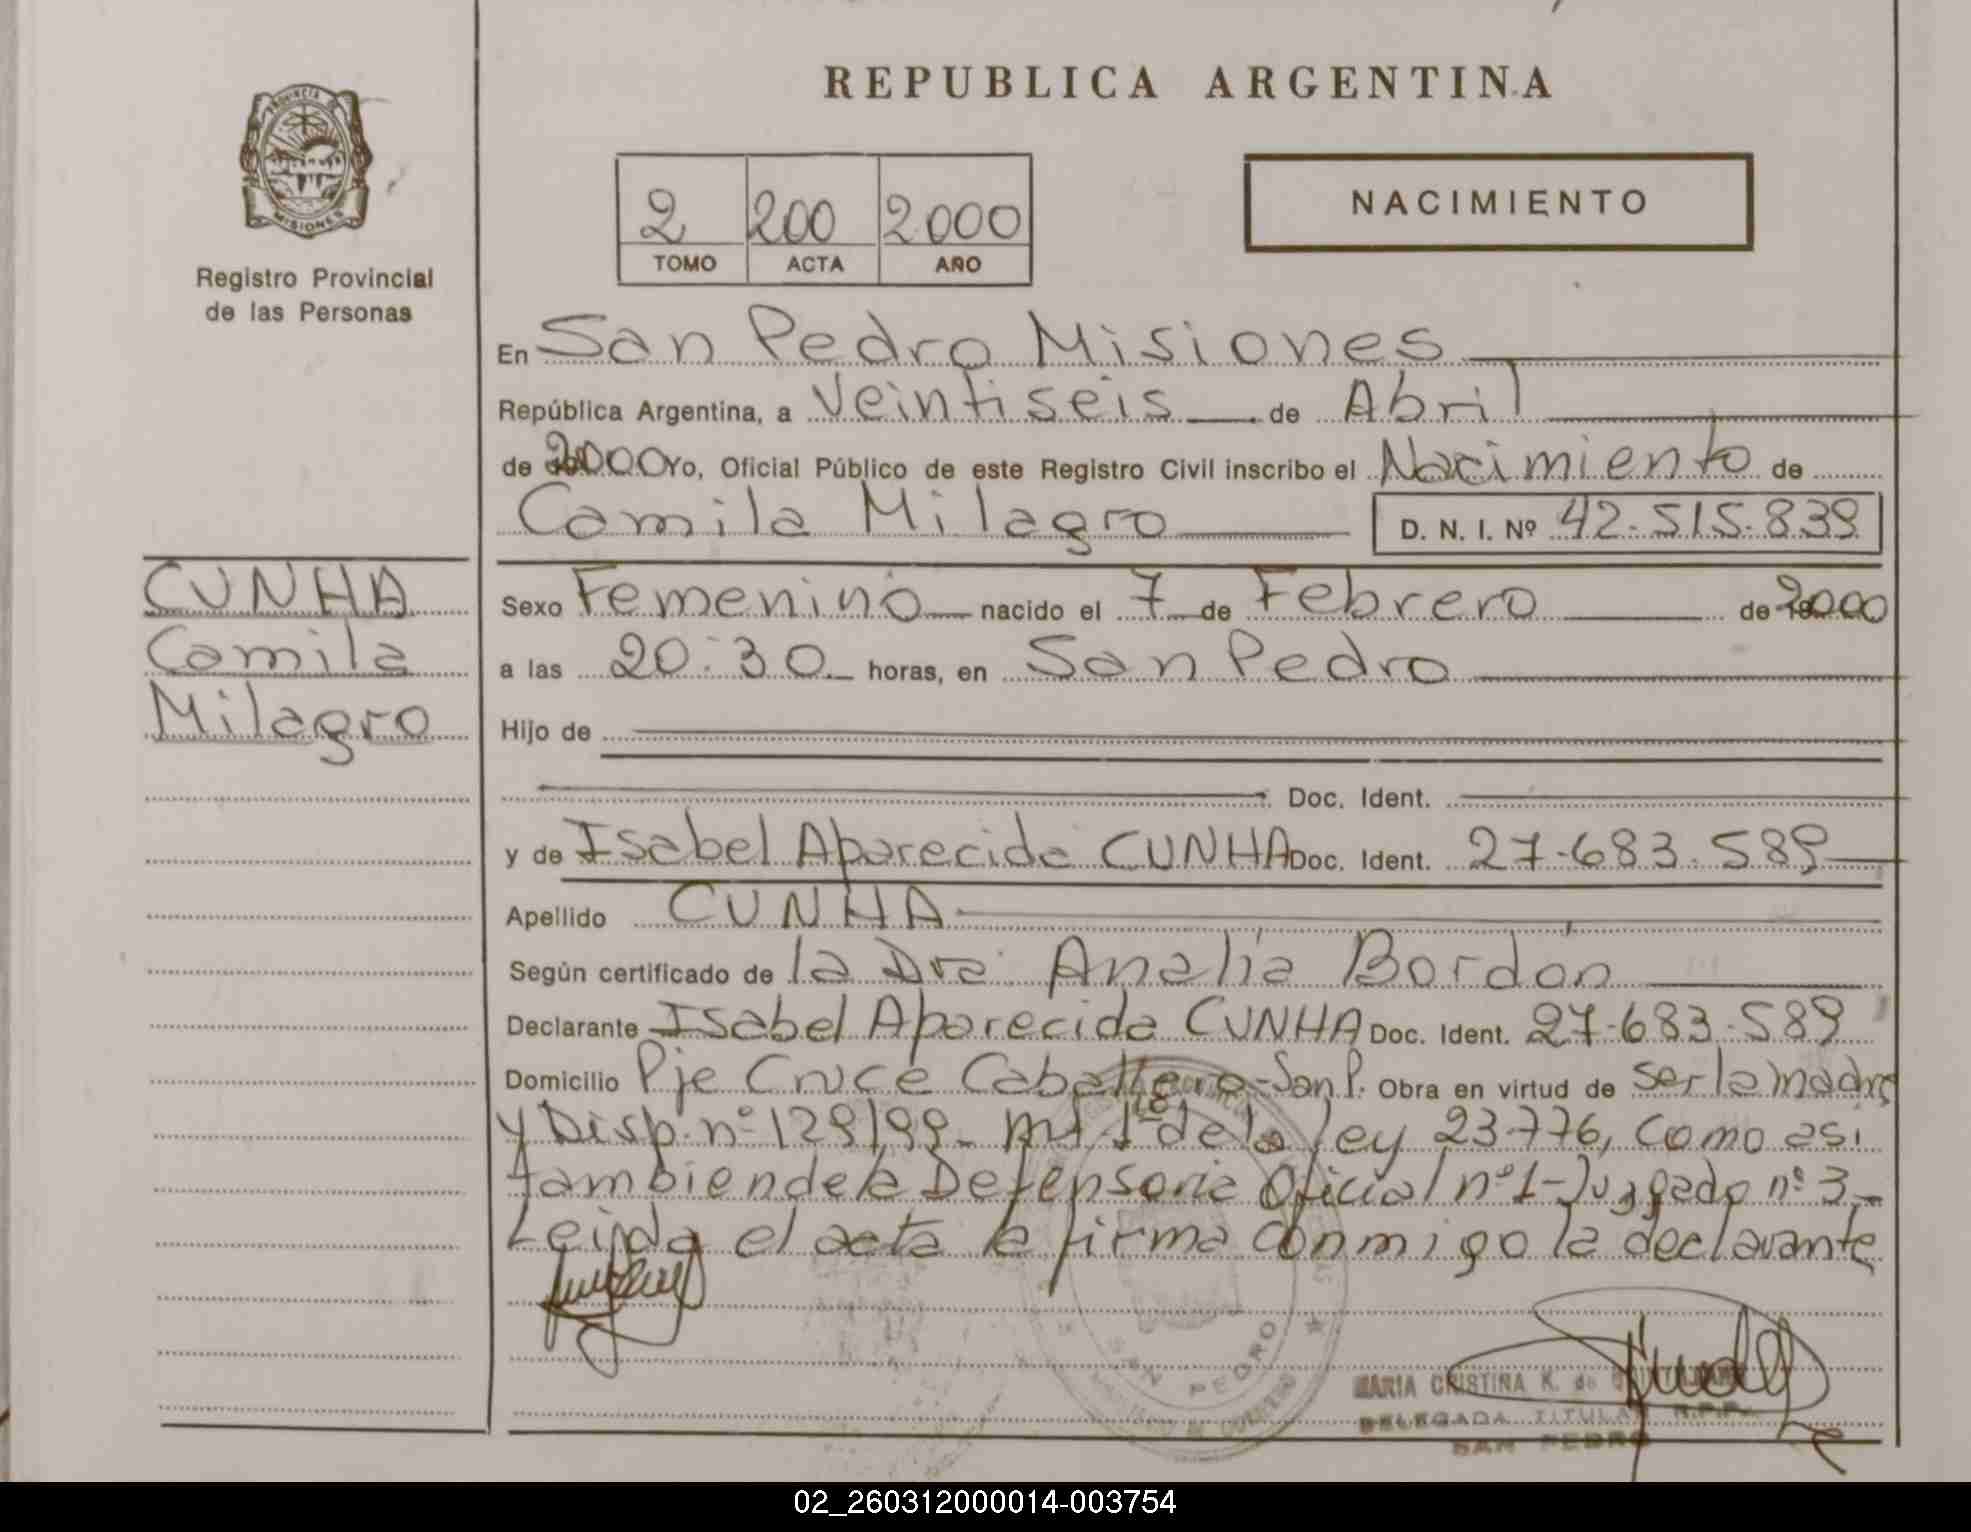 REPUBLICA ARGENTINA
PROVINCIA DE MISIONES
Registro Provincial
de las Personas
2 200 2000
TOMO ACTA AÑO
NACIMIENTO
En San Pedro Misiones
República Argentina, a Veintiseis de Abril
de 2000 Yo, Oficial Público de este Registro Civil inscribo el Nacimiento de
Camila Milagro D. N. I. Nº 42.515.839
CUNHA
Camila
Milagro
Sexo Femenino nacido el 7 de Febrero de 2000
a las 20:30 horas, en San Pedro
Hijo de
Doc. Ident.
y de Isabel Aparecida CUNHA Doc. Ident. 27.683.589
Apellido CUNHA
Según certificado de la Dra Analía Bordón
Declarante Isabel Aparecida CUNHA Doc. Ident. 27.683.589
Domicilio Pje Cruce Caballero-San P. Obra en virtud de ser la madre
y Disp. nº 129/99 de la ley 23776, como asi
tambien de la Defensoria Oficial nº 1-Juzgado nº 3
Leida el acta la firma conmigo la declarante
SAN PEDRO
MARIA CRISTINA K. de
DELEGADA TITULAR R.P.P.
SAN PEDRO
02_260312000014-003754